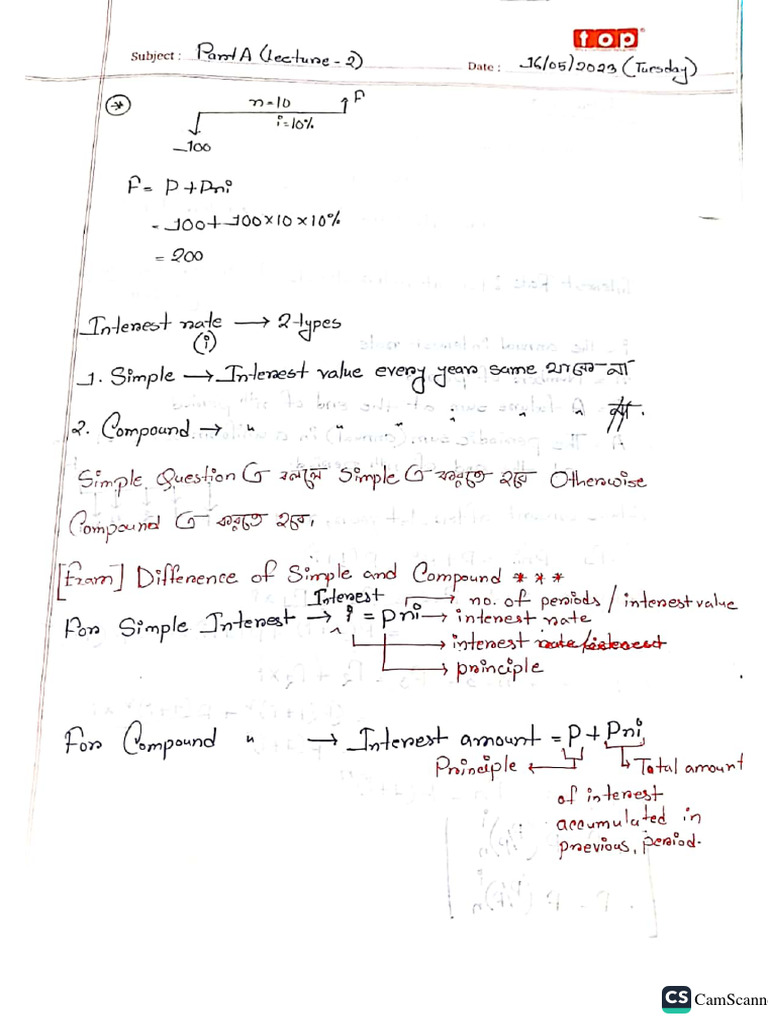 top
Subject : Part A (Lecture - 2)
Date : 16/05/2023 (Tuesday)
n=10 F
i=10%
100
F = P + Pni
= 100 + 100 × 10 × 10%
= 200
Interest rate → 2 types
(i)
1. Simple → Interest value every year same থাকে না
2. Compound → " " " " " "
Simple Question এ বললে Simple এ করতে হবে Otherwise
Compound এ করতে হবে।
[Exam] Difference of Simple and Compound * * *
Interest → no. of periods / interest value
For Simple Interest → i = pni → interest rate
→ interest
→ principle
For Compound " → Interest amount = P + Pni
Principle ← → Total amount
of interest
accumulated in
previous, period.
CS CamScann